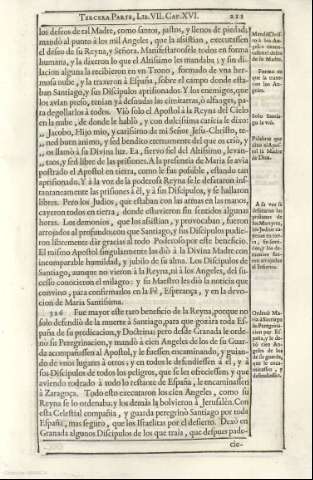 TERCERA PARTE, LIB. VII. CAP. XVI. 223
los deseos de tal Madre, como santos, justos, y llenos de piedad;
mandó al punto à los mil Angeles, que la asistian, executassen
el deseo de su Reyna, y Señora. Manifestaronsele todos en forma
humana, y la dixeron lo que el Altissimo les mandaba; y sin di-
lacion alguna la recibieron en un Trono, formado de una her-
mosa nube, y la traxeron à España, sobre el campo donde esta-
ban Santiago, y sus Discipulos aprisionados. Y los enemigos, que
los avian preso, tenian yà desnudas las cimitarras, ò alfanges, pa-
ra degollarlos à todos. Viò solo el Apostol à la Reyna del Cielo
en la nube, de donde le hablò, y con dulcissima caricia le dixo:
Jacobo, Hijo mio, y carissimo de mi Señor Jesu-Christo, te-
ned buen animo, y sed bendito eternamente del que os criò, y
os llamò à su Divina luz. Ea, siervo fiel del Altissimo, levan-
taos, y sed libre de las prisiones. A la presencia de Maria se avia
postrado el Apostol en tierra, como le fue possible, estando tan
aprisionado. Y à la voz de la poderosa Reyna se le desataron ins-
tantaneamente las prisiones à èl, y à sus Discipulos, y se hallaron
libres. Pero los Judios, que estaban con las armas en las manos,
cayeron todos en tierra, donde estuvieron sin sentidos algunas
horas. Los demonios, que los assistian, y provocaban, fueron
arrojados al profundo; con que Santiago, y sus Discipulos pudie-
ron libremente dàr gracias al todo Poderoso por este beneficio.
El mismo Apostol singularmente las diò à la Divina Madre con
incomparable humildad, y jubilo de su alma. Los Discipulos de
Santiago, aunque no vieron à la Reyna, ni à los Angeles, del su-
cesso conocieron el milagro: y su Maestro les diò la noticia que
convino, para confirmarlos en la Fè, Esperança, y en la devo-
cion de Maria Santissima.
326 Fue mayor este raro beneficio de la Reyna, porque no
solo defendiò de la muerte à Santiago, para que gozara toda Es-
paña de su predicacion, y Doctrina; pero desde Granada le orde-
nò su Peregrinacion, y mandò à cien Angeles de los de su Guar-
da acompañassen al Apostol, y le fuessen encaminando, y guian-
do de unos lugares à otros; y en todos le defendiessen à èl, y à
sus Discipulos de todos los peligros, que se les ofreciessen; y que
aviendo rodeado à todo lo restante de España, le encaminassen
à Zaragoça. Todo esto executaron los cien Angeles, como su
Reyna se lo ordenaba; y los demàs la bolvieron à Jerusalèn. Con
esta Celestial compañia, y guarda peregrinò Santiago por toda
España, mas seguro, que los Israelitas por el desierto. Dexò en
Granada algunos Discipulos de los que traìa, que despues pade-
cie-